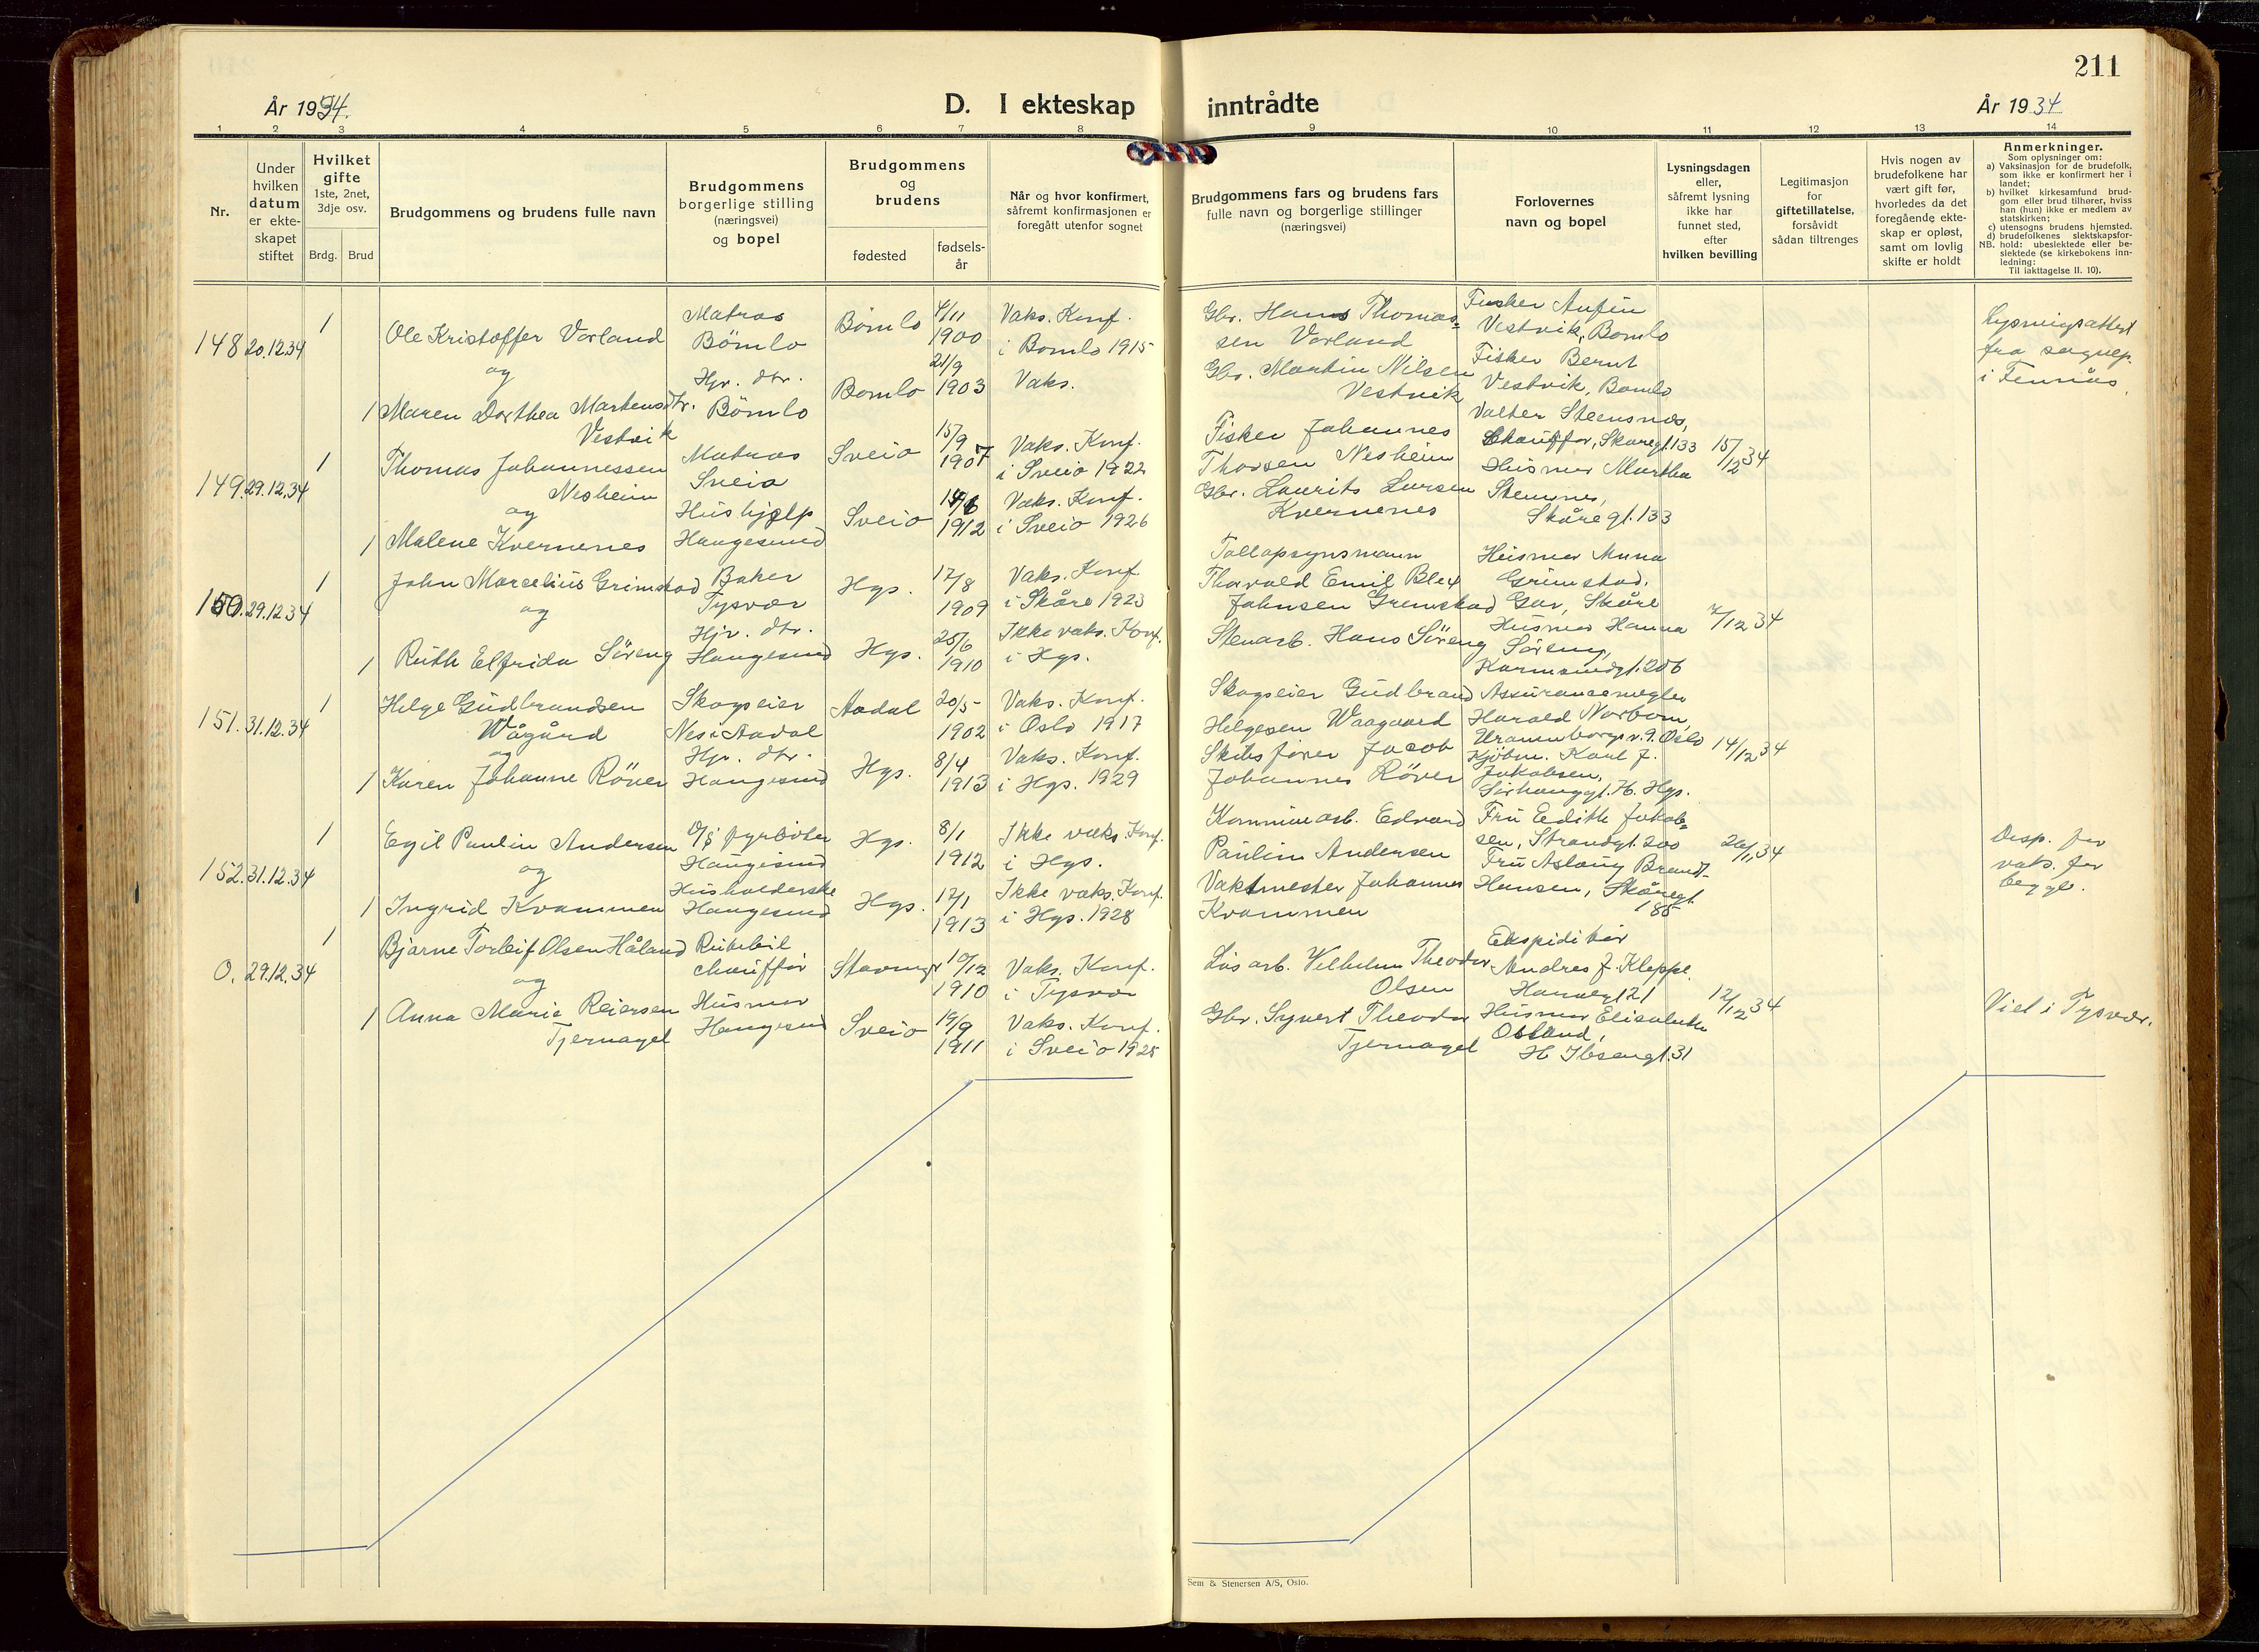 211
År 1934.
D. I ekteskap inntrådte
År 1934
1 2 3 4 5 6 7 8 9 10 11 12 13 14
Nr.
Under hvilken datum er ekte-skapet stiftet
Hvilket gifte 1ste, 2net, 3dje osv.
Brdg. Brud
Brudgommens og brudens fulle navn
Brudgommens borgerlige stilling (næringsvei) og bopel
Brudgommens og brudens
fødested
fødsels-år
Når og hvor konfirmert, såfremt konfirmasjonen er foregått utenfor sognet
Brudgommens fars og brudens fars fulle navn og borgerlige stillinger (næringsvei)
Forlovernes navn og bopel
Lysningsdagen eller, såfremt lysning ikke har funnet sted, efter hvilken bevilling
Legitimasjon for giftetillatelse, forsåvidt sådan tiltrenges
Hvis nogen av brudefolkene har vært gift før, hvorledes da det foregående ekte-skap er opløst, samt om lovlig skifte er holdt
Anmerkninger.
Som oplysninger om:
a) Vaksinasjon for de brudefolk, som ikke er konfirmert her i landet;
b) hvilket kirkesamfund brud-gom eller brud tilhører, hviss han (hun) ikke er medlem av statskirken;
c) utensogns brudens hjemsted.
d) brudefolkenes slektskapsfor-
NB. hold: ubeslektede eller be-slektede (se kirkebokens inn-ledning:
Til iakttagelse II. 10).
148 20.12.34
1
Ole Kristoffer Vorland
og
1 Maren Dorthea Martensdtr.
Vestvik
Matros
Bömlo
Hjv. dtr.
Bömlo
Bömlo
4/11
1900
Bomlo
21/9
1903
Vaks. Konf.
i Bomlo 1915
Vaks.
Gbr. Hans Thomas=
sen Vorland
Gbr. Martin Nilsen
Vestvik
Fisker Anfin
Vestvik, Bomlo
Fisker Bernt
Vestvik, Bomlo
Lysningsattest
fra sognep.
i Finnås
149. 29.12.34
1
Thomas Johannessen
Nesheim
og
1 Malene Kvernenes
Matros
Sveio
Hushjelp
Haugesund
Sveio
15/9
1907
Sveio
14/6
1912
Vaks. Konf.
i Sveio 1922
Vaks. Konf.
i Sveio 1926
Fisker Johannes
Thorsen Nesheim
Gbr. Laurits Larsen
Kvernenes
Valter Steensnes,
Chauffør, Skåregt. 133
Husmor Martha
Stennes,
Skåregt. 133
15/12 34
150. 29.12.34
1
John Marcelius Grimstad
og
1 Ruth Elfrida Söreng
Baker
Tysvær
Hjv. dtr.
Haugesund
Hgs.
17/8
1909
Hgs.
25/6
1910
Vaks. Konf.
i Skåre 1923
Ikke vaks. Konf.
i Hgs.
Tollopsynsmann
Thorvald Emil Blex
Johnsen Grimstad
Stenarb. Hans Söreng
Husmor Anna
Grimstad,
Gar, Skåre
Husmor Hanna
Söreng,
Karmsundgt. 206
7/12 34
151. 31.12.34
1
Helge Gudbrandsen
Wågård
og
1 Karen Johanne Röver
Skogseier
Nes i Aadal
Hjv. dtr.
Haugesund
Aadal
20/5
1902
Hgs.
8/4
1913
Vaks. Konf.
i Oslo 1917
Vaks. Konf.
i Hgs. 1929
Skogseier Gudbrand
Helgesen Waagaard
Skibsfører Jacob
Johannes Röver
Assurancemegler
Harald Norbom,
Uranienborgv. 9. Oslo
Kjöbm. Karl J.
Jakobsen,
Sørhauggt. Hgs.
14/12 34
152. 31.12.34
1
Egil Paulin Andersen
og
1 Ingrid Kvammen
D/S fyrbøter
Haugesund
Husholderske
Haugesund
Hgs.
8/1
1912
Hgs.
17/1
1913
Ikke vaks. Konf.
i Hgs.
Ikke vaks. Konf.
i Hgs. 1928
Kommunearb. Edvard
Paulin Andersen
Vaktmester Johannes
Kvammen
Fru Edith Jakob=
sen, Strandgt. 200
Fru Aslaug Brandt-
Hansen, Skåregt.
185
26/11 34
Disp. for
vaks. for
begge.
0. 29.12.34
1
Bjarne Torleif Olsen Håland
og
1 Anna Marie Reiersen
Tjernagel
Rutebil
chauffør
Husmor
Haugesund
Stavanger
10/12
1910
Sveio
19/9
1911
Vaks. Konf.
i Tysvær
Vaks. Konf.
i Sveio 1925
Løsarb. Vilhelm Theodor
Olsen
Gbr. Syvert Theodor
Tjernagel
Ekspeditør
Andres J. Kleppe,
Haralsgt 121
Husmor Elisabeth
Odland,
H. Ibsengt. 31
12/12 34
Viet i Tysvær.
Sem & Stenersen A/S, Oslo.